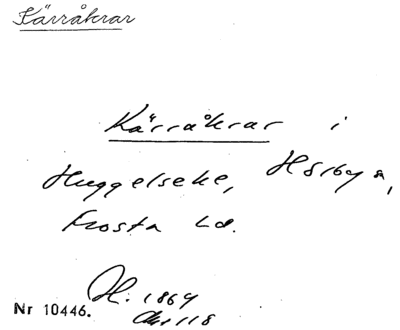 Kärråkrar
Kärråkrar i
Huggelseke, Hörby s,
Frosta hd.
H. 1869
Nr 10446.
118